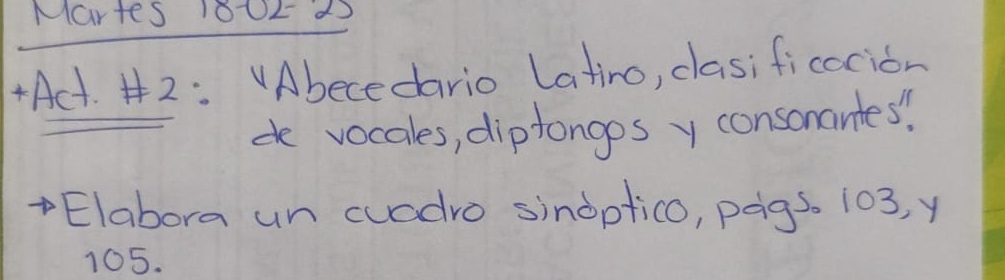 Martes 18-02-25
+Act. #2: "Abecedario Latino, clasificación
de vocales, diptongos y consonantes".
→Elabora un cuadro sinóptico, págs. 103, y
105.